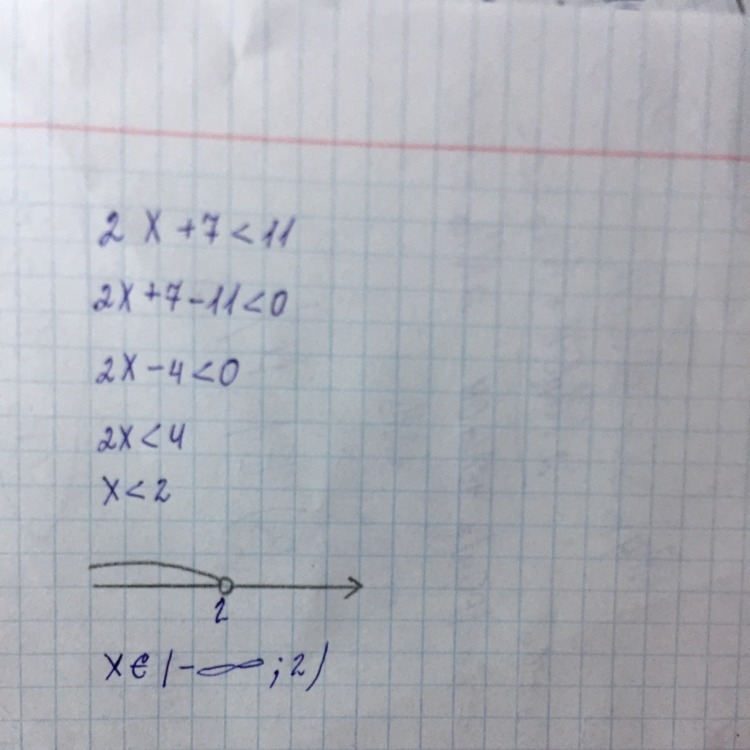 2 x +7 < 11
2x+7-11<0
2x-4<0
2x<4
x<2
2
x∈(-∞;2)